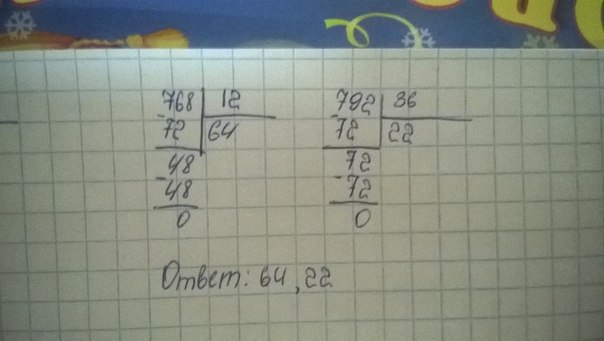 768 12 792 36
- 72 64 - 72 22
48 72
- 48 - 72
0 0
Ответ: 64, 22